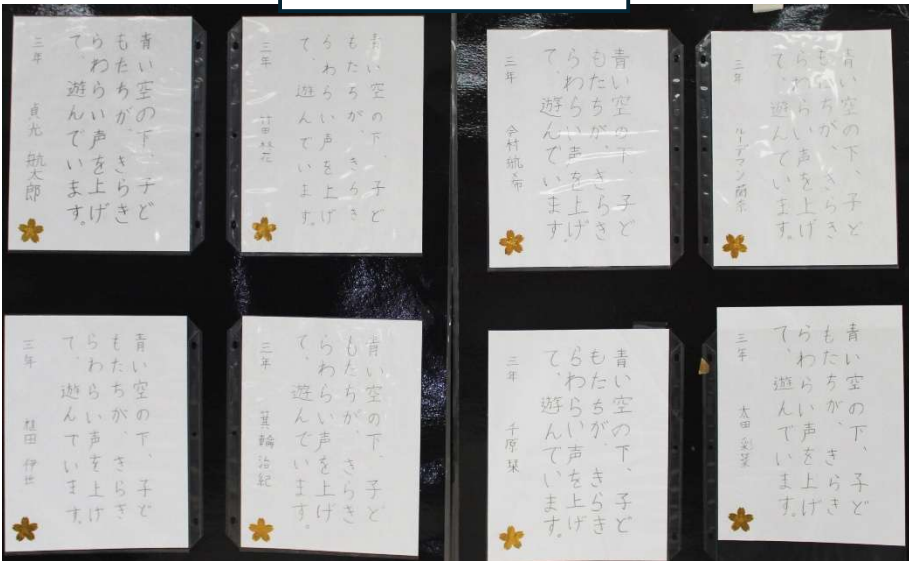 青い空の下、子ど
もたちが、きらき
らわらい声を上げ
て、遊んでいます。
三年 貞光 航太郎
青い空の下、子ど
もたちが、きらき
らわらい声を上げ
て、遊んでいます。
三年
青い空の下、子ど
もたちが、きらき
らわらい声を上げ
て、遊んでいます。
三年
青い空の下、子ど
もたちが、きらき
らわらい声を上げ
て、遊んでいます。
三年
青い空の下、子ど
もたちが、きらき
らわらい声を上げ
て、遊んでいます。
三年
青い空の下、子ど
もたちが、きらき
らわらい声を上げ
て、遊んでいます。
三年 箕輪 治紀
青い空の下、子ど
もたちが、きらき
らわらい声を上げ
て、遊んでいます。
三年 千原 栞
青い空の下、子ど
もたちが、きらき
らわらい声を上げ
て、遊んでいます。
三年 太田